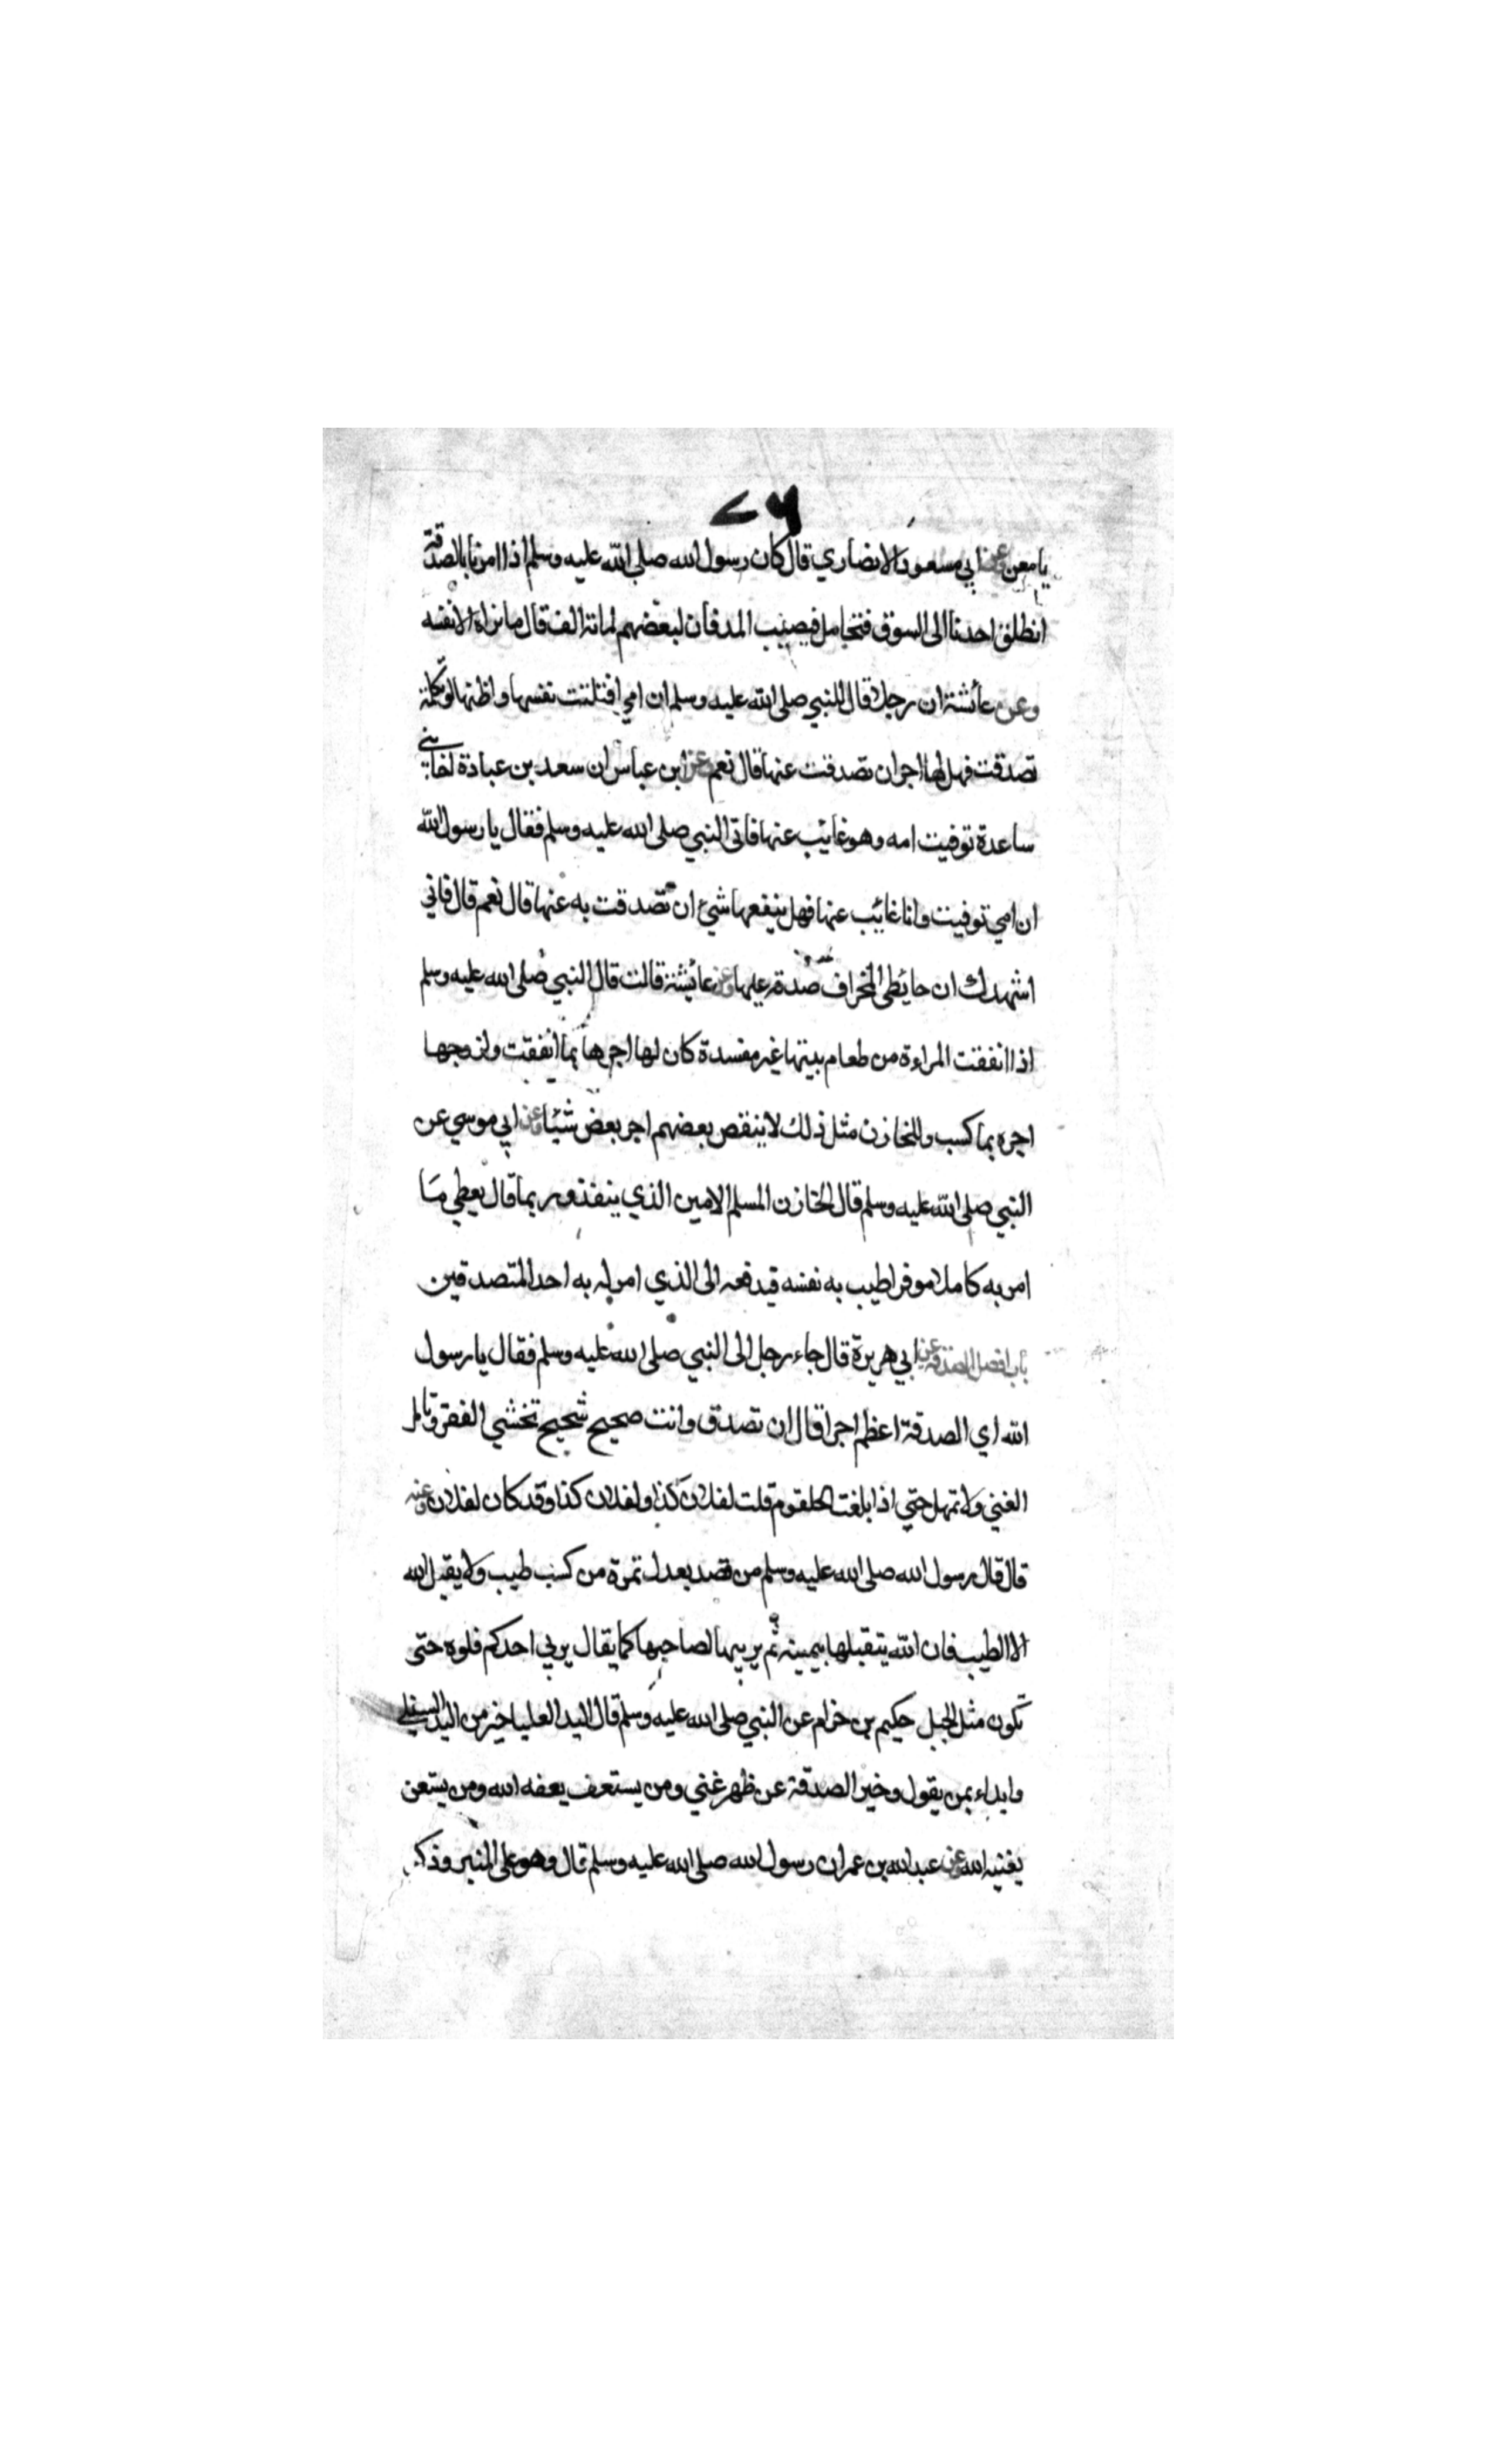 يا معن وعن ابي مسعود الانصاري قال كان رسول الله صلى الله عليه وسلم اذا امرنا بالصدقة
انطلق احدنا الى السوق فتحامل فيصيب المد فان لبعضهم لمائة الف قال ما نراه الا نفسه
وعن عائشة ان رجلا قال للنبي صلى الله عليه وسلم ان امي افتلتت نفسها واظنها لو تكلمت
تصدقت فهل لها اجر ان تصدقت عنها قال نعم وعن ابن عباس ان سعد بن عبادة اخا بني
ساعدة توفيت امه وهو غايب عنها فاتى النبي صلى الله عليه وسلم فقال يا رسول الله
ان امي توفيت وانا غائب عنها فهل ينفعها شئ ان تصدقت به عنها قال نعم قال فاني
اشهدك ان حائطي المخراف صدقة عليها وعن عائشة قالت قال النبي صلى الله عليه وسلم
اذا انفقت المراءة من طعام بيتها غير مفسدة كان لها اجرها بما انفقت ولزوجها
اجره بما كسب وللخازن مثل ذلك لا ينقص بعضهم اجر بعض شيئا وعن ابي موسي عن
النبي صلى الله عليه وسلم قال الخازن المسلم الامين الذي ينفذ وربما قال يعطي ما
امر به كاملا موفرا طيب به نفسه فيدفعه الى الذي امر له به احد المتصدقين
باب افضل الصدقة عن ابي هريرة قال جاء رجل الى النبي صلى الله عليه وسلم فقال يا رسول
الله اي الصدقة اعظم اجرا قال ان تصدق وانت صحيح شحيح تخشي الفقر وتامل
الغني ولا تمهل حتي اذا بلغت الحلقوم قلت لفلان كذا ولفلان كذا وقد كان لفلان وعنه
قال قال رسول الله صلى الله عليه وسلم من تصد بعدل تمرة من كسب طيب ولا يقبل الله
الا الطيب فان الله يتقبلها بيمينه ثم يربيها لصاحبها كما يقال يربي احدكم فلوه حتى
تكون مثل الجبل حكيم بن حزام عن النبي صلى الله عليه وسلم قال اليد العليا خير من اليد السفلي
وابداء بمن يقول وخير الصدقة عن ظهر غني ومن يستعف يعفه الله ومن يستغن
يغنيه الله وعن عبد الله بن عمر ان رسول الله صلى الله عليه وسلم قال وهو على المنبر وذكر